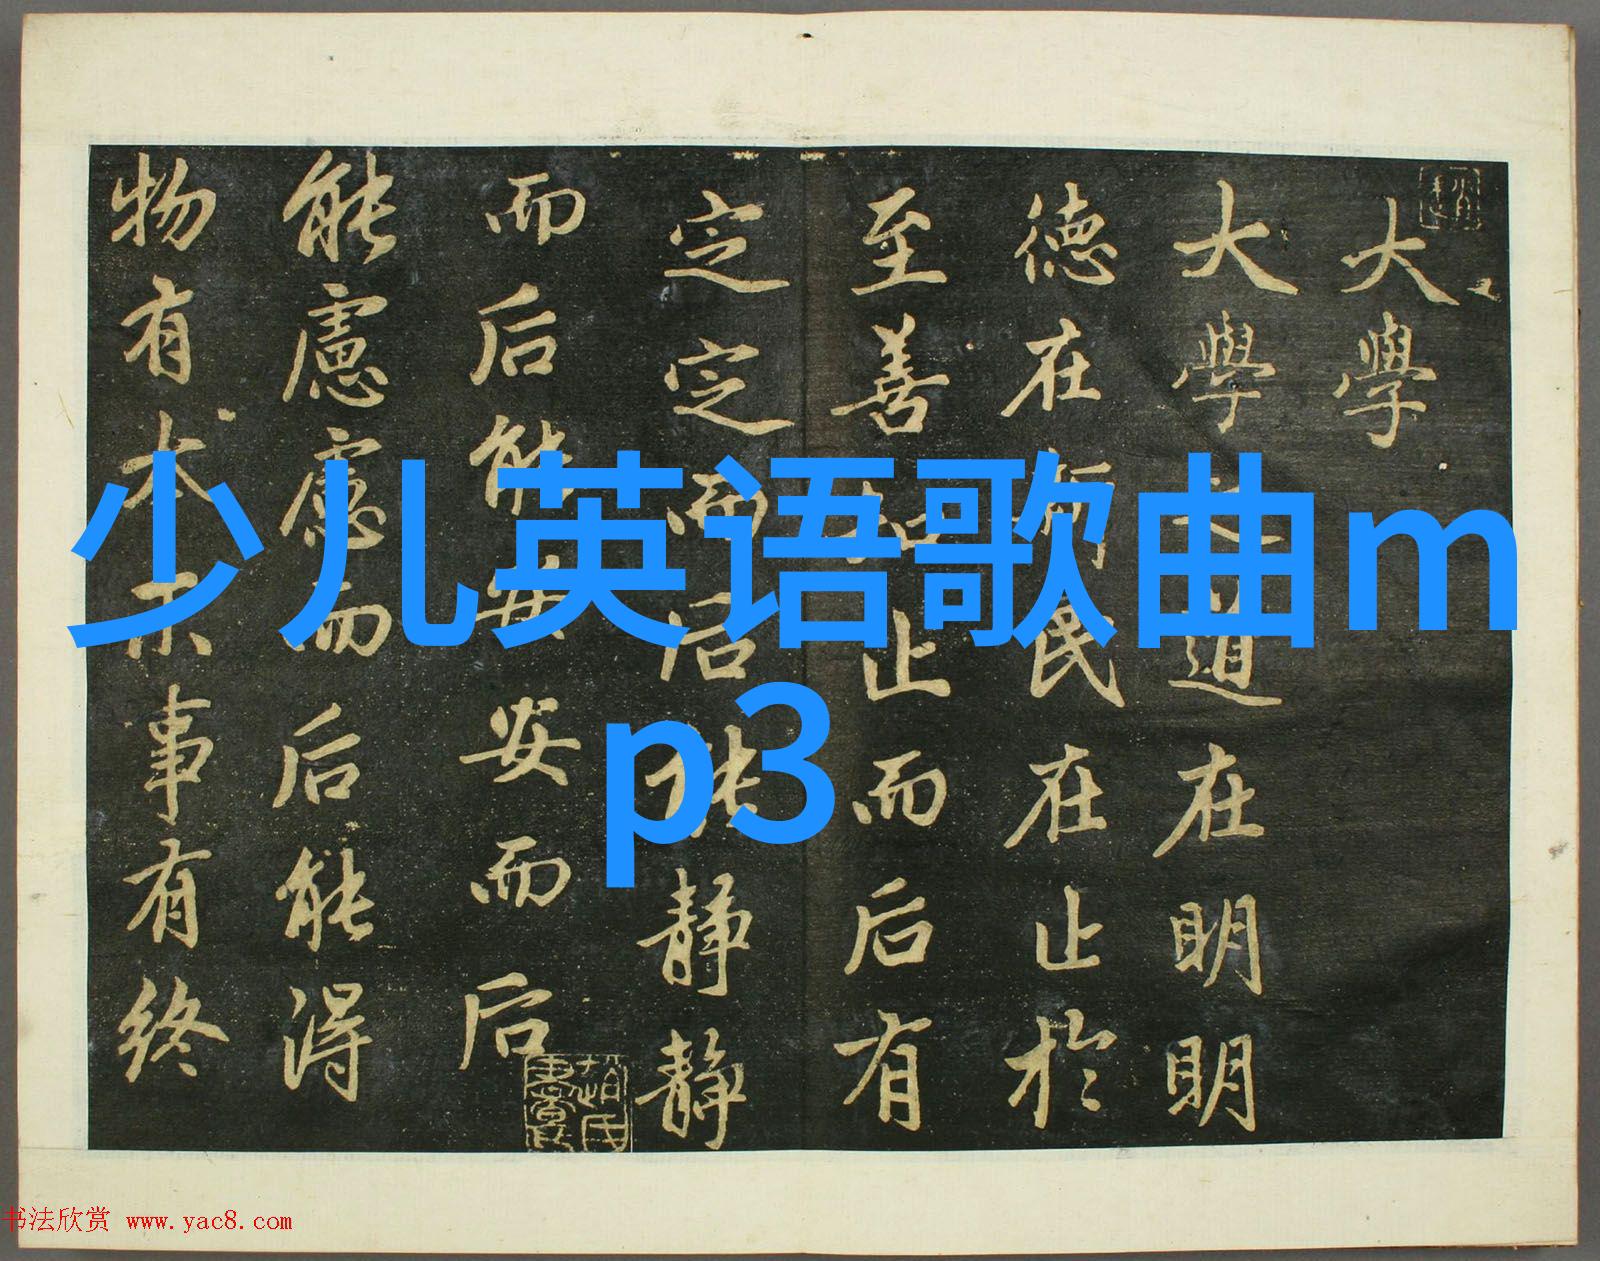 大學
大學之道在明明
德在新民在止於
至善知止而后有
定定而后能静静
而后能安安而后
能慮慮而后能得
物有本末事有終
少儿英语歌曲m
p3
书法欣赏 www.yac8.com